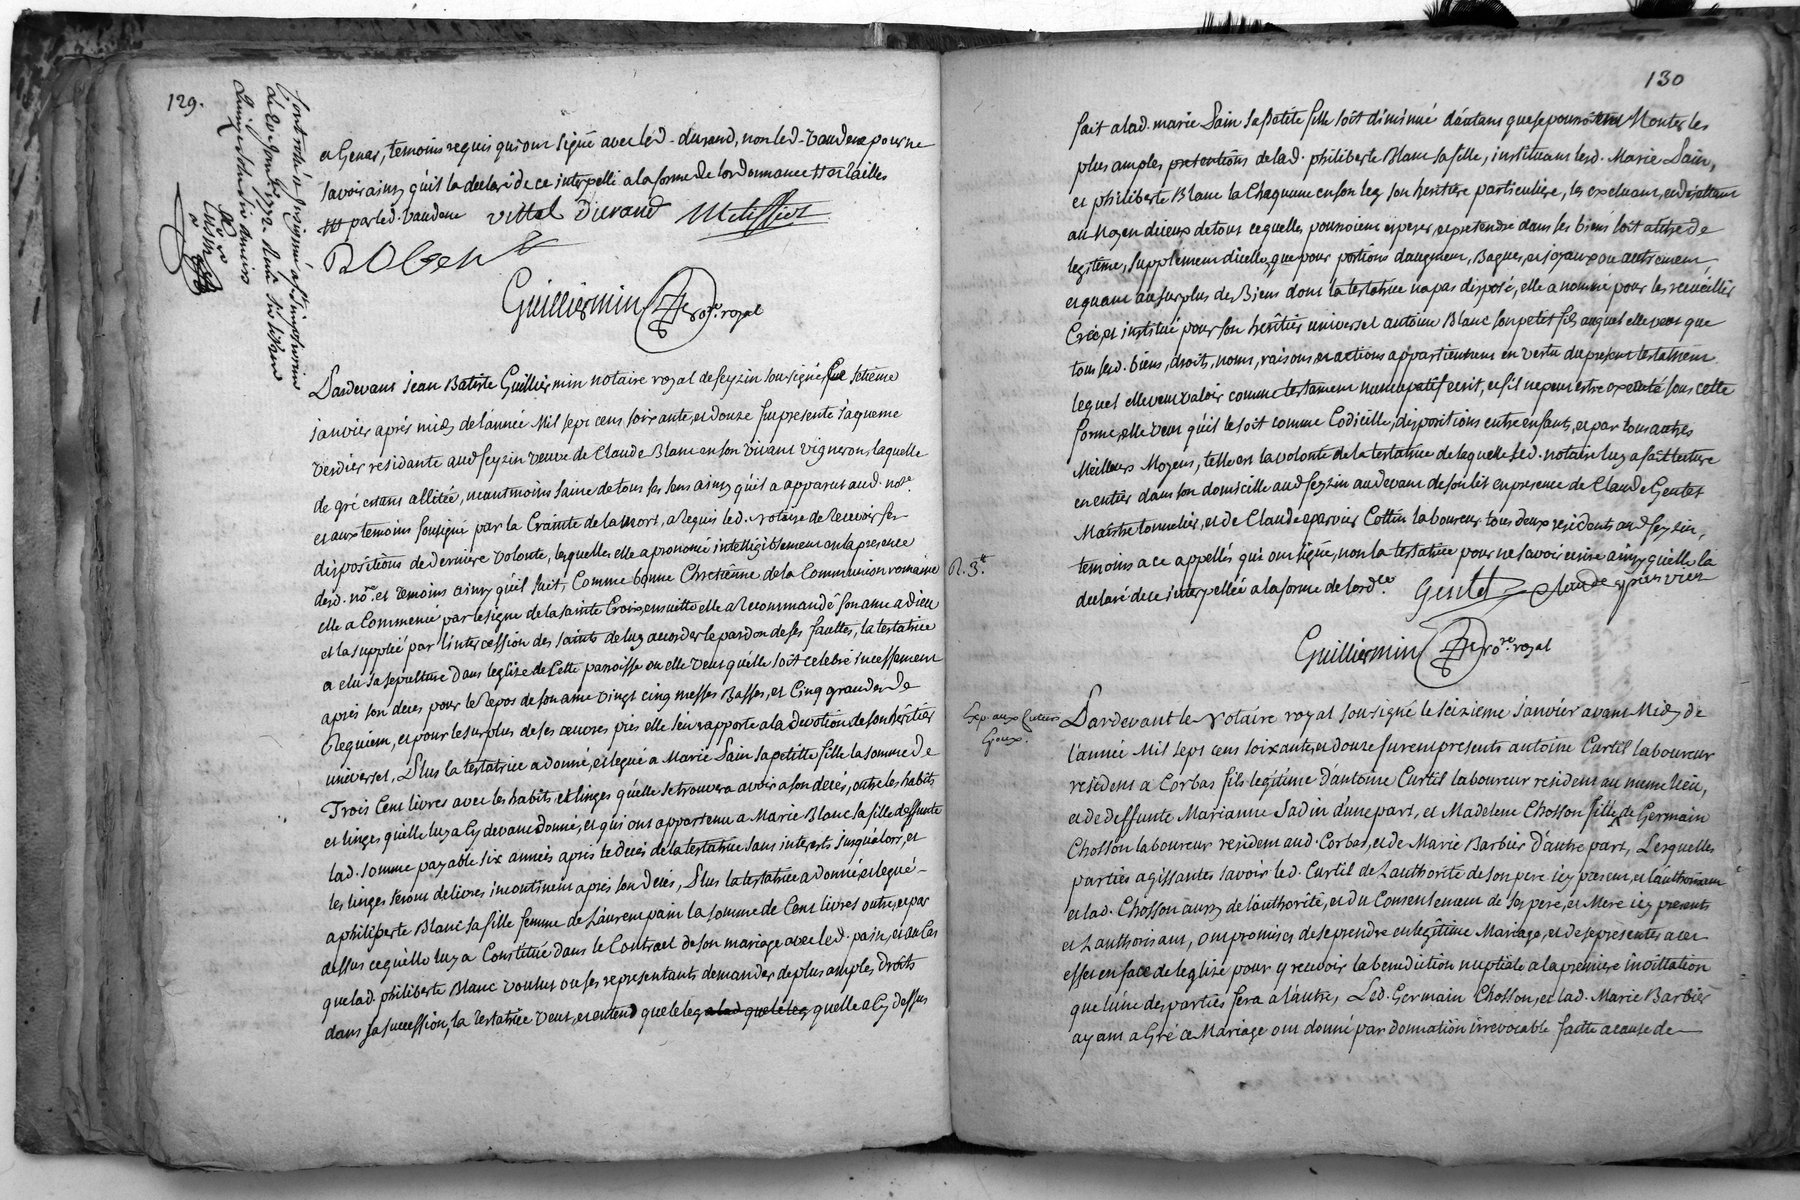 129.
et Genas, temoins requis qui ont signé avec led. durand, non led. Vaudene pour ne
savoir ainsy qu'il la declaré de ce interpellé a la forme de lordonnance
par led. Vaudene vital Durand Messier
Robert
Guilliermin no.re royal
Pardevant jean Batiste Guilliermin notaire royal de feyzin sousigné le setieme
janvier aprés midy de l'année Mil sept cens soixante, et douze fut presente jaqueme
Verdier residante aud. feyzin veuve de Claude Blanc en son vivant vigneron, laquelle
de gré etant allitée, neantmoins saine de tous ses sens ainsy qu'il a apparut aud. no.re
et aux temoins sousigné par la Crainte de la mort, a requis led. notaire de recevoir ses
dispositions de derniere volonté, lesquelles elle a prononcé intelligiblement en la presence
desd. no.re et temoins ainsy qu'il suit, Comme bonne Chretiénne de la Communion romaine
elle a Commencé par le signe de la sainte Croix, ensuitte elle a Recommandé son ame a dieu
et la supplié par l'intercession des saints de luy accorder le pardon de ses fauttes, la testatrice
a elu sa sepulture dans leglise de Cette paroisse ou elle veut qu'elle soit celebré incessement
aprés son deces pour le Repos de son ame vingt cinq messes Basses, et Cinq grandes de
Requiem, et pour le surplus de ses œuvres pies elle s'en rapporte a la devotion de son héritier
universel, Plus la testatrice a donné, et legué a Marie Pain sa petitte fille la somme de
Trois Cent livres avec les habits et linges qu'elle se trouvera avoir a son decés, outre les habits
et linges qu'elle luy a Cy devant donné, et qui ont appartenu a Marie Blanc sa fille deffunte
lad. somme payable six années aprés le decés de la testatrice sans interets jusqu'alors, et
les linges seront delivrés incontinent aprés son decés, Plus la testatrice a donné, et legué
a philiberte Blanc sa fille femme de Laurent pain la somme de Cent livres outre, et par
dessus ce qu'elle luy a Constitué dans le Contract de son mariage avec led. pain, et au Cas
que lad. philiberte Blanc voulut ou ses representants demander de plus amples droits
dans sa succession, la testatrice veut, et entend que le leg a lad. que le leg quelle a Cy dessus
130
fait a lad. marie Pain sa petite fille soit diminué d'autant que se pourroient Monter les
plus amples, pretentions de lad. philiberte Blanc sa fille, instituant lesd. Marie Pain,
et philiberte Blanc la Chaqueune en son leg son heritiére particuliére, les excluant, et dejettant
au moyen d'iceux de tout ce quelles pourroient esperer, et pretendre dans ses biens soit a titre de
legitime, supplement d'icelle, que pour portions daugment, Bagues, et joyaux ou autrement,
et quant au surplus des Biens dont la testatrice n'a pas disposé, elle a nommé pour les recueillir
Créé, et institué pour son heritier universel antoine Blanc son petit fils auquel elle veut que
tous sesd. biens, droits, noms, raisons et actions appartiennent en vertu du present testament
lequel elle veut valoir comme testament nuncupatif ecrit, et s'il ne peut estre executé sous cette
forme, elle veut qu'il le soit comme Codicille, dispositions entre enfants, et par tous autres
Meilleurs Moyens, telle est la volonté de la testatrice de laquelle led. notaire luy a fait lecture
en entier dans son domicille aud. feyzin au devant de son lit en presence de Claude Gentet
Maitre tonnelier, et de Claude epervier Cottin laboureur tous deux residents aud. feyzin,
temoins a ce appellés qui ont signé, non la testatrice pour ne savoir ecrire ainsy qu'elle la
R. 3.tt
declaré de ce interpellée a la forme de lord.ce Gentet
Guilliermin no.re royal
Exp. aux Futurs
Epoux.
Pardevant le Notaire royal sousigné le seizieme janvier avant Midy de
l'année Mil sept cens soixante, et douze furent presents antoine Curtil laboureur
resident a Corbas fils legitime d'antoine Curtil laboureur resident au meme lieu,
et de deffunte Marianne Jadin d'une part, et Madelene Chosson fille de Germain
Chosson laboureur resident aud. Corbas, et de Marie Barbier d'autre part, Lesquelles
parties agissantes savoir led. Curtil de Lauthorité de son pere icy present, et lauthorisant
et lad. Chosson aussy de l'authorité, et du Consentement de ses pere, et Mere icy presents
et Lauthorisant, ont promis de se prendre en legitime Mariage, et de se presenter a cet
effet en face de leglise pour y recevoir la benediction nuptiale a la premiere invitation
que lune des parties fera a l'autre, Led. Germain Chosson, et lad. Marie Barbier
ayant a Gré ce Mariage ont donné par donnation irrevocable faitte a cause de